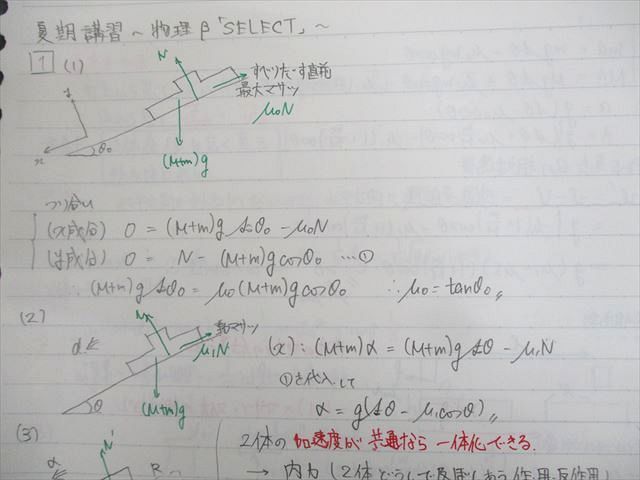 夏期講習 ～ 物理β「SELECT」～
1 (1)
N
すべりだす直前
最大マサツ
μ₀N
y
x
θ₀
(M+m)g
つり合い
(x成分) 0 = (M+m)g sinθ₀ - μ₀N
(y成分) 0 = N - (M+m)g cosθ₀ …①
∴ (M+m)g sinθ₀ = μ₀(M+m)g cosθ₀ ∴ μ₀ = tanθ₀
(2)
N
動マサツ
μ₁N
α
θ
(M+m)g
(x): (M+m)α = (M+m)g sinθ - μ₁N
①を代入して
α = g(sinθ - μ₁cosθ)
(3)
N'
α
R
2体の加速度が共通なら一体化できる.
→ 内力(2体どうしで及ぼしあう作用・反作用)